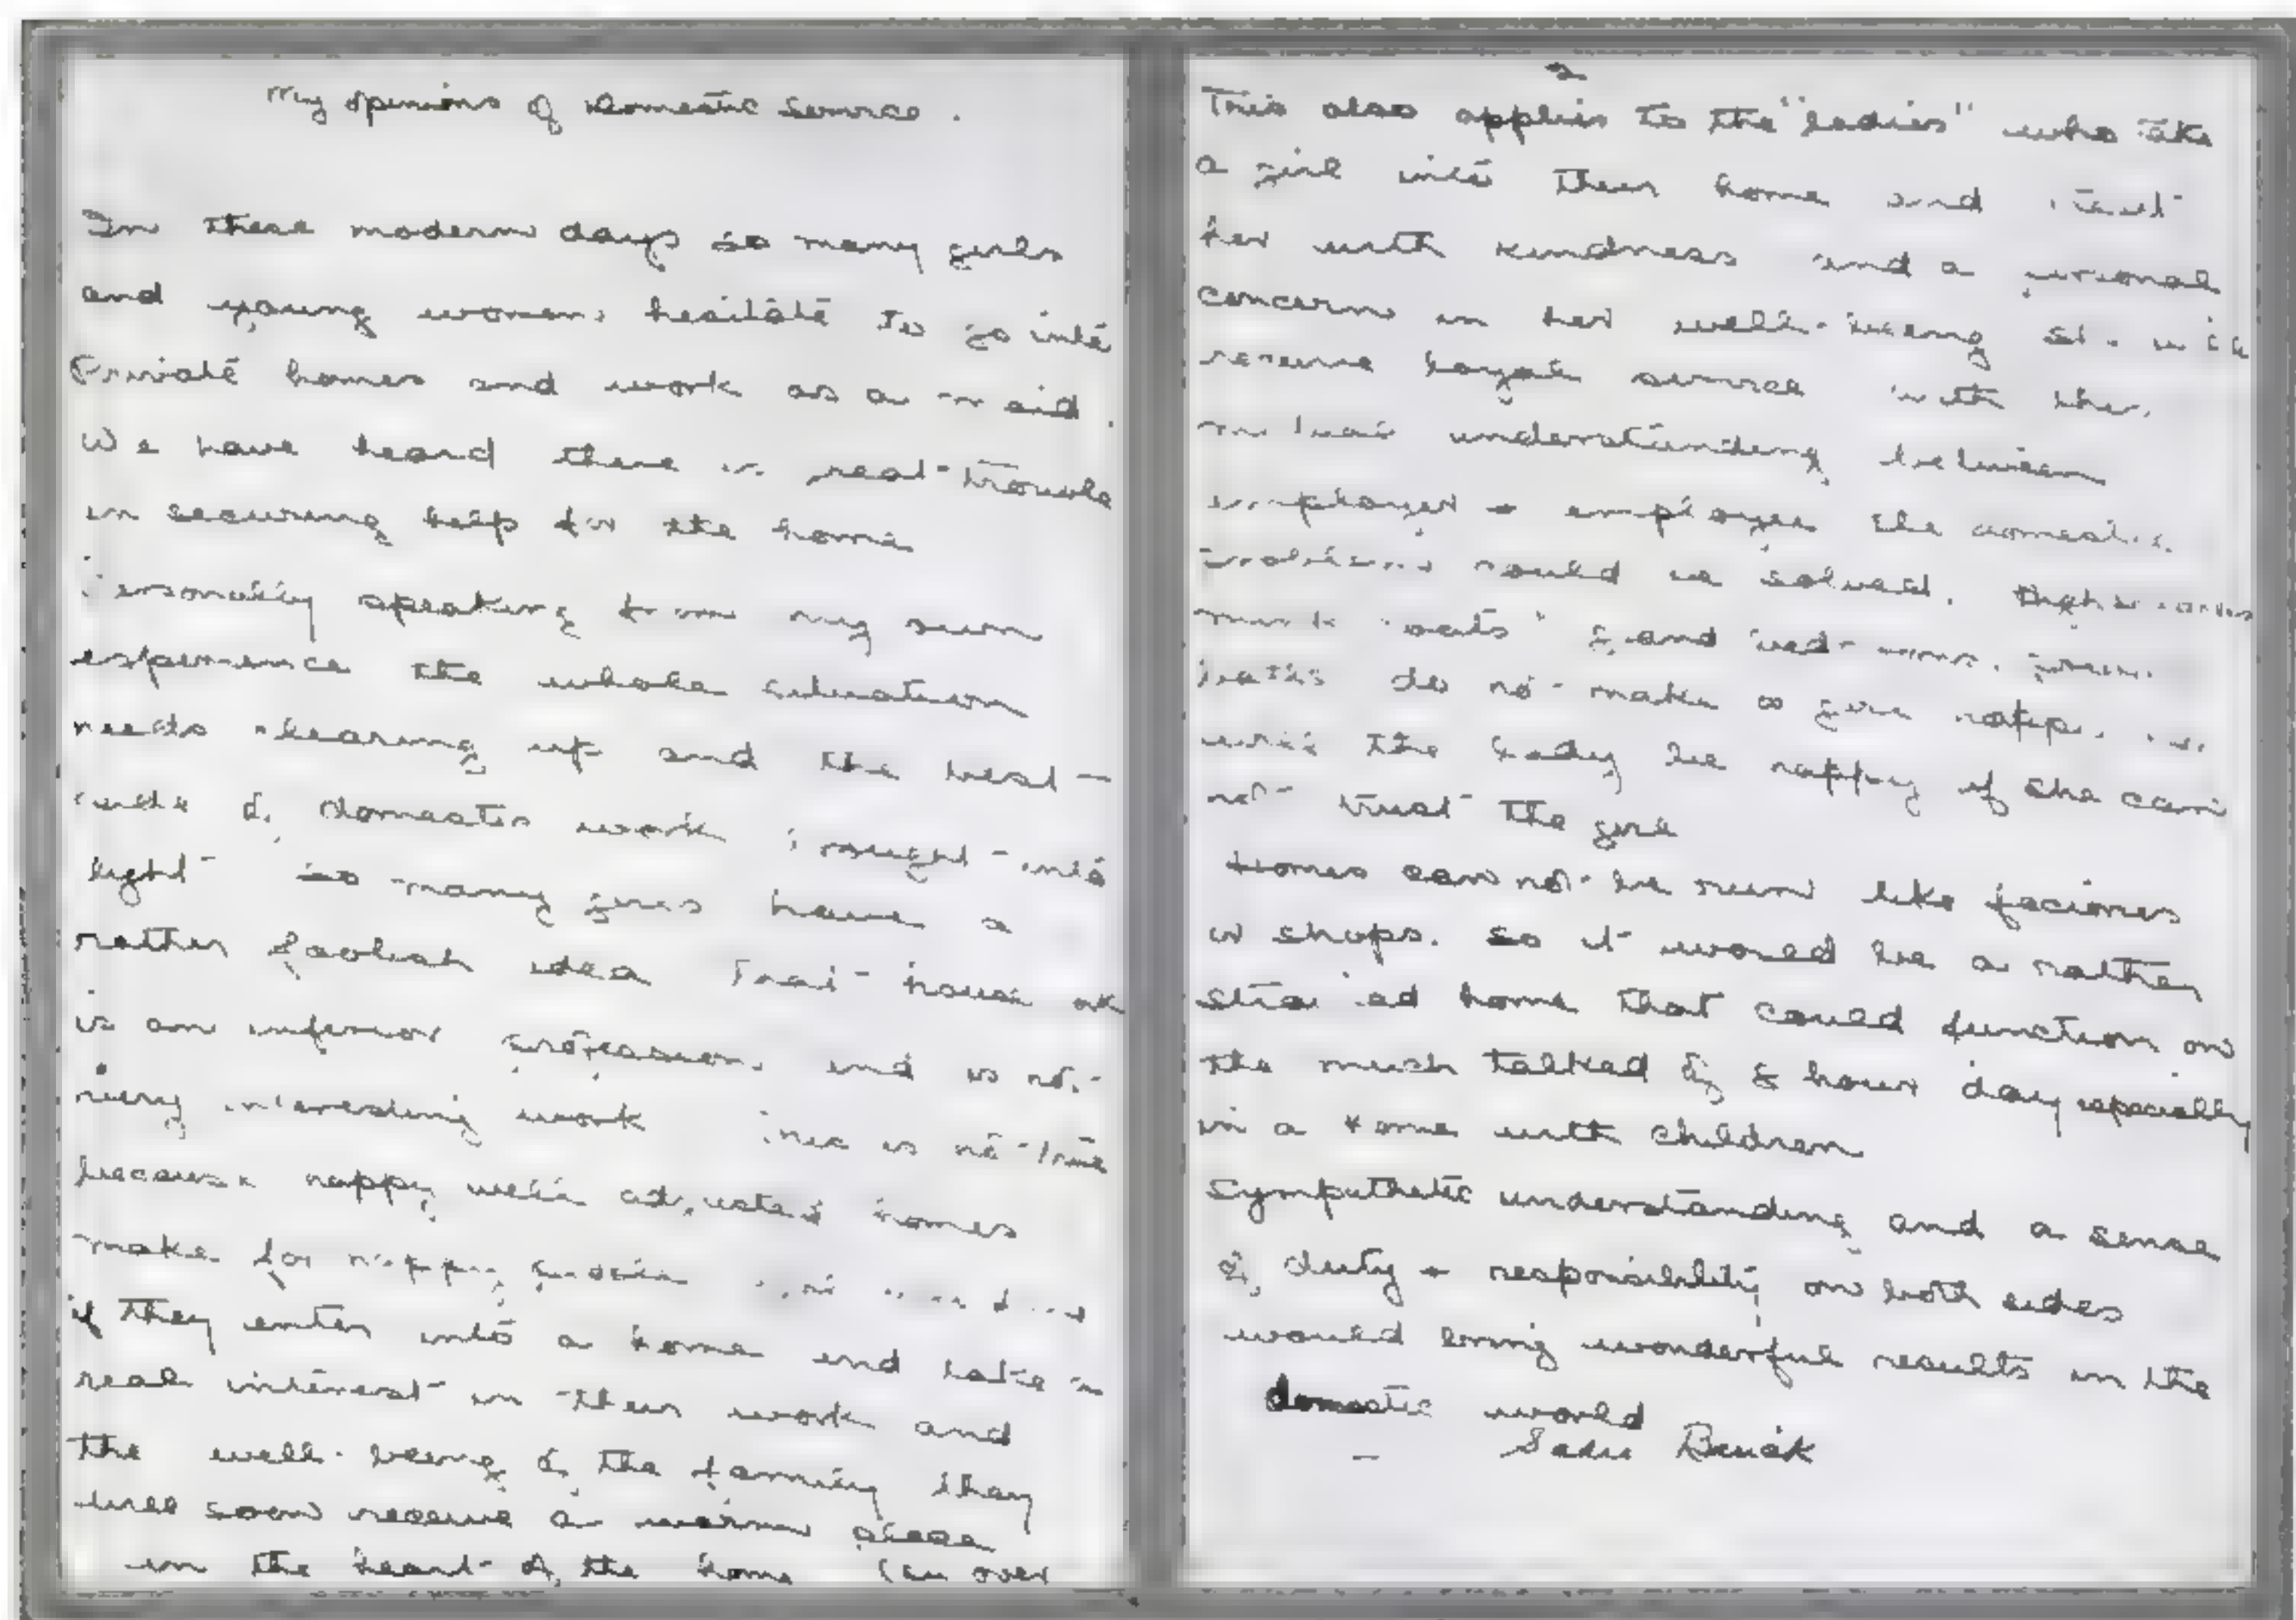 My opinions of Domestic Service.
In these modern days so many girls
and young women hesitate to go into
Private homes and work as a maid.
We have heard there is real trouble
in securing help for the home
Personally speaking from my own
experience the whole situation
needs clearing up and the best
side of domestic work brought into
light so many girls have a
rather foolish idea that house
is an inferior profession and is not
very interesting work this is not true
because happy well adjusted homes
make for happy
if they enter into a home and take a
real interest in their work and
the well-being of the family they
will soon receive a warm place
in the heart of the home over
2
This also applies to the "ladies" who take
a girl into their home and treat
her with kindness and a personal
concern in her well-being she will
receive loyal service with the
mutual understanding between
employer + employee the domestic
problems could be solved.
mink coats and
baths do not make a girl
will the lady be happy if she can
not trust the girl
Homes can not be run like factories
or shops. so it would be a rather
home that could function on
the much talked of 8 hour day especially
in a home with children
Sympathetic understanding and a sense
of duty + responsibility on both sides
would bring wonderful results in the
domestic world